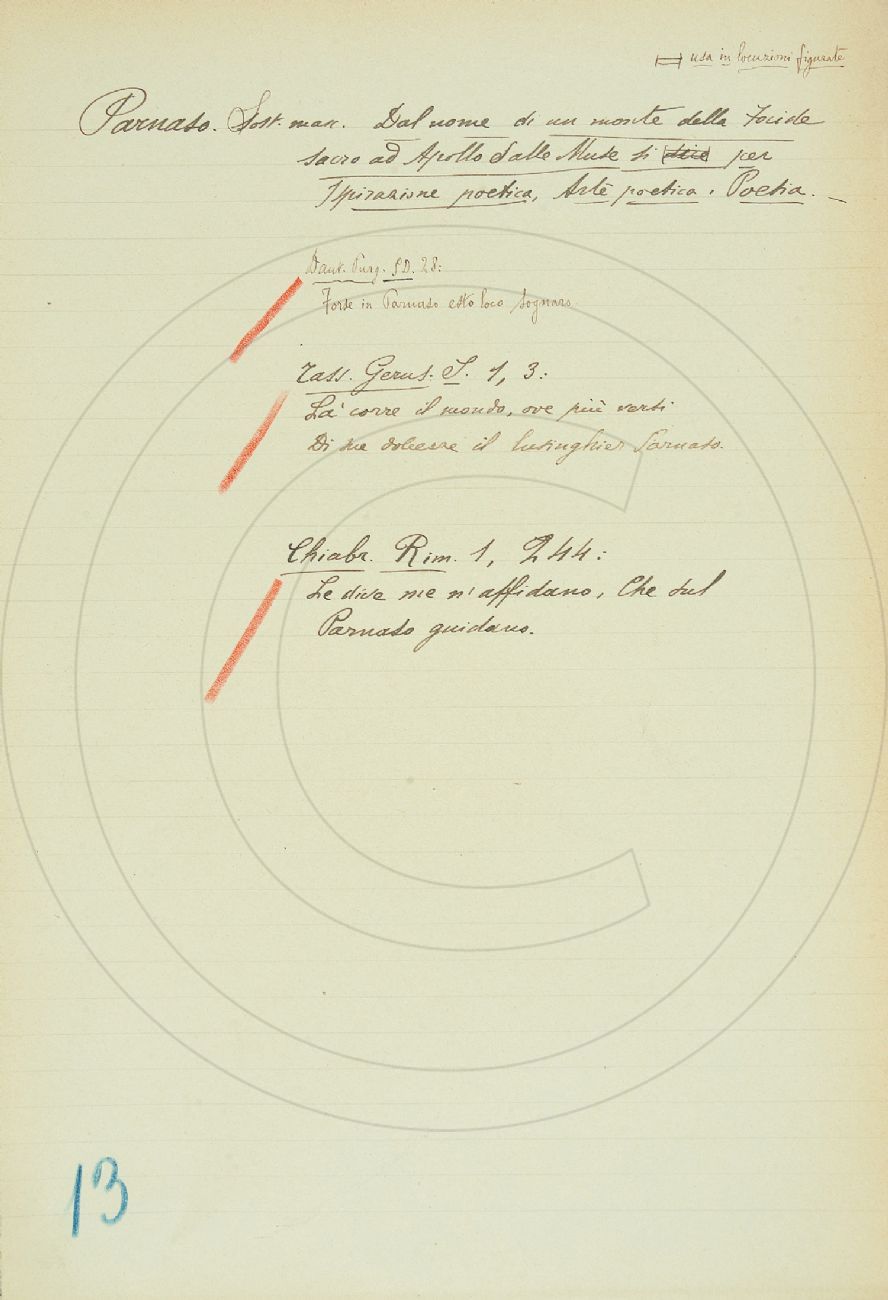 usa in locuzioni figurate
Parnaso. Sost. masc. Dal nome di un monte della Focide
sacro ad Apollo e alle Muse si per
Ispirazione poetica, Arte poetica, Poesia. —
Dant. Purg. 28:
Forse in Parnaso esto loco sognaro.
Tass. Gerus. 1, 3:
Là corre il mondo, ove più versi
Di sue dolcezze il lusinghier Parnaso.
Chiabr. Rim. 1, 244:
Le dive me n'affidano, Che sul
Parnaso guidano.
13